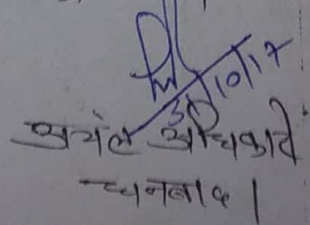 31/10/17
अंचल अधिकारी
धनबाद।